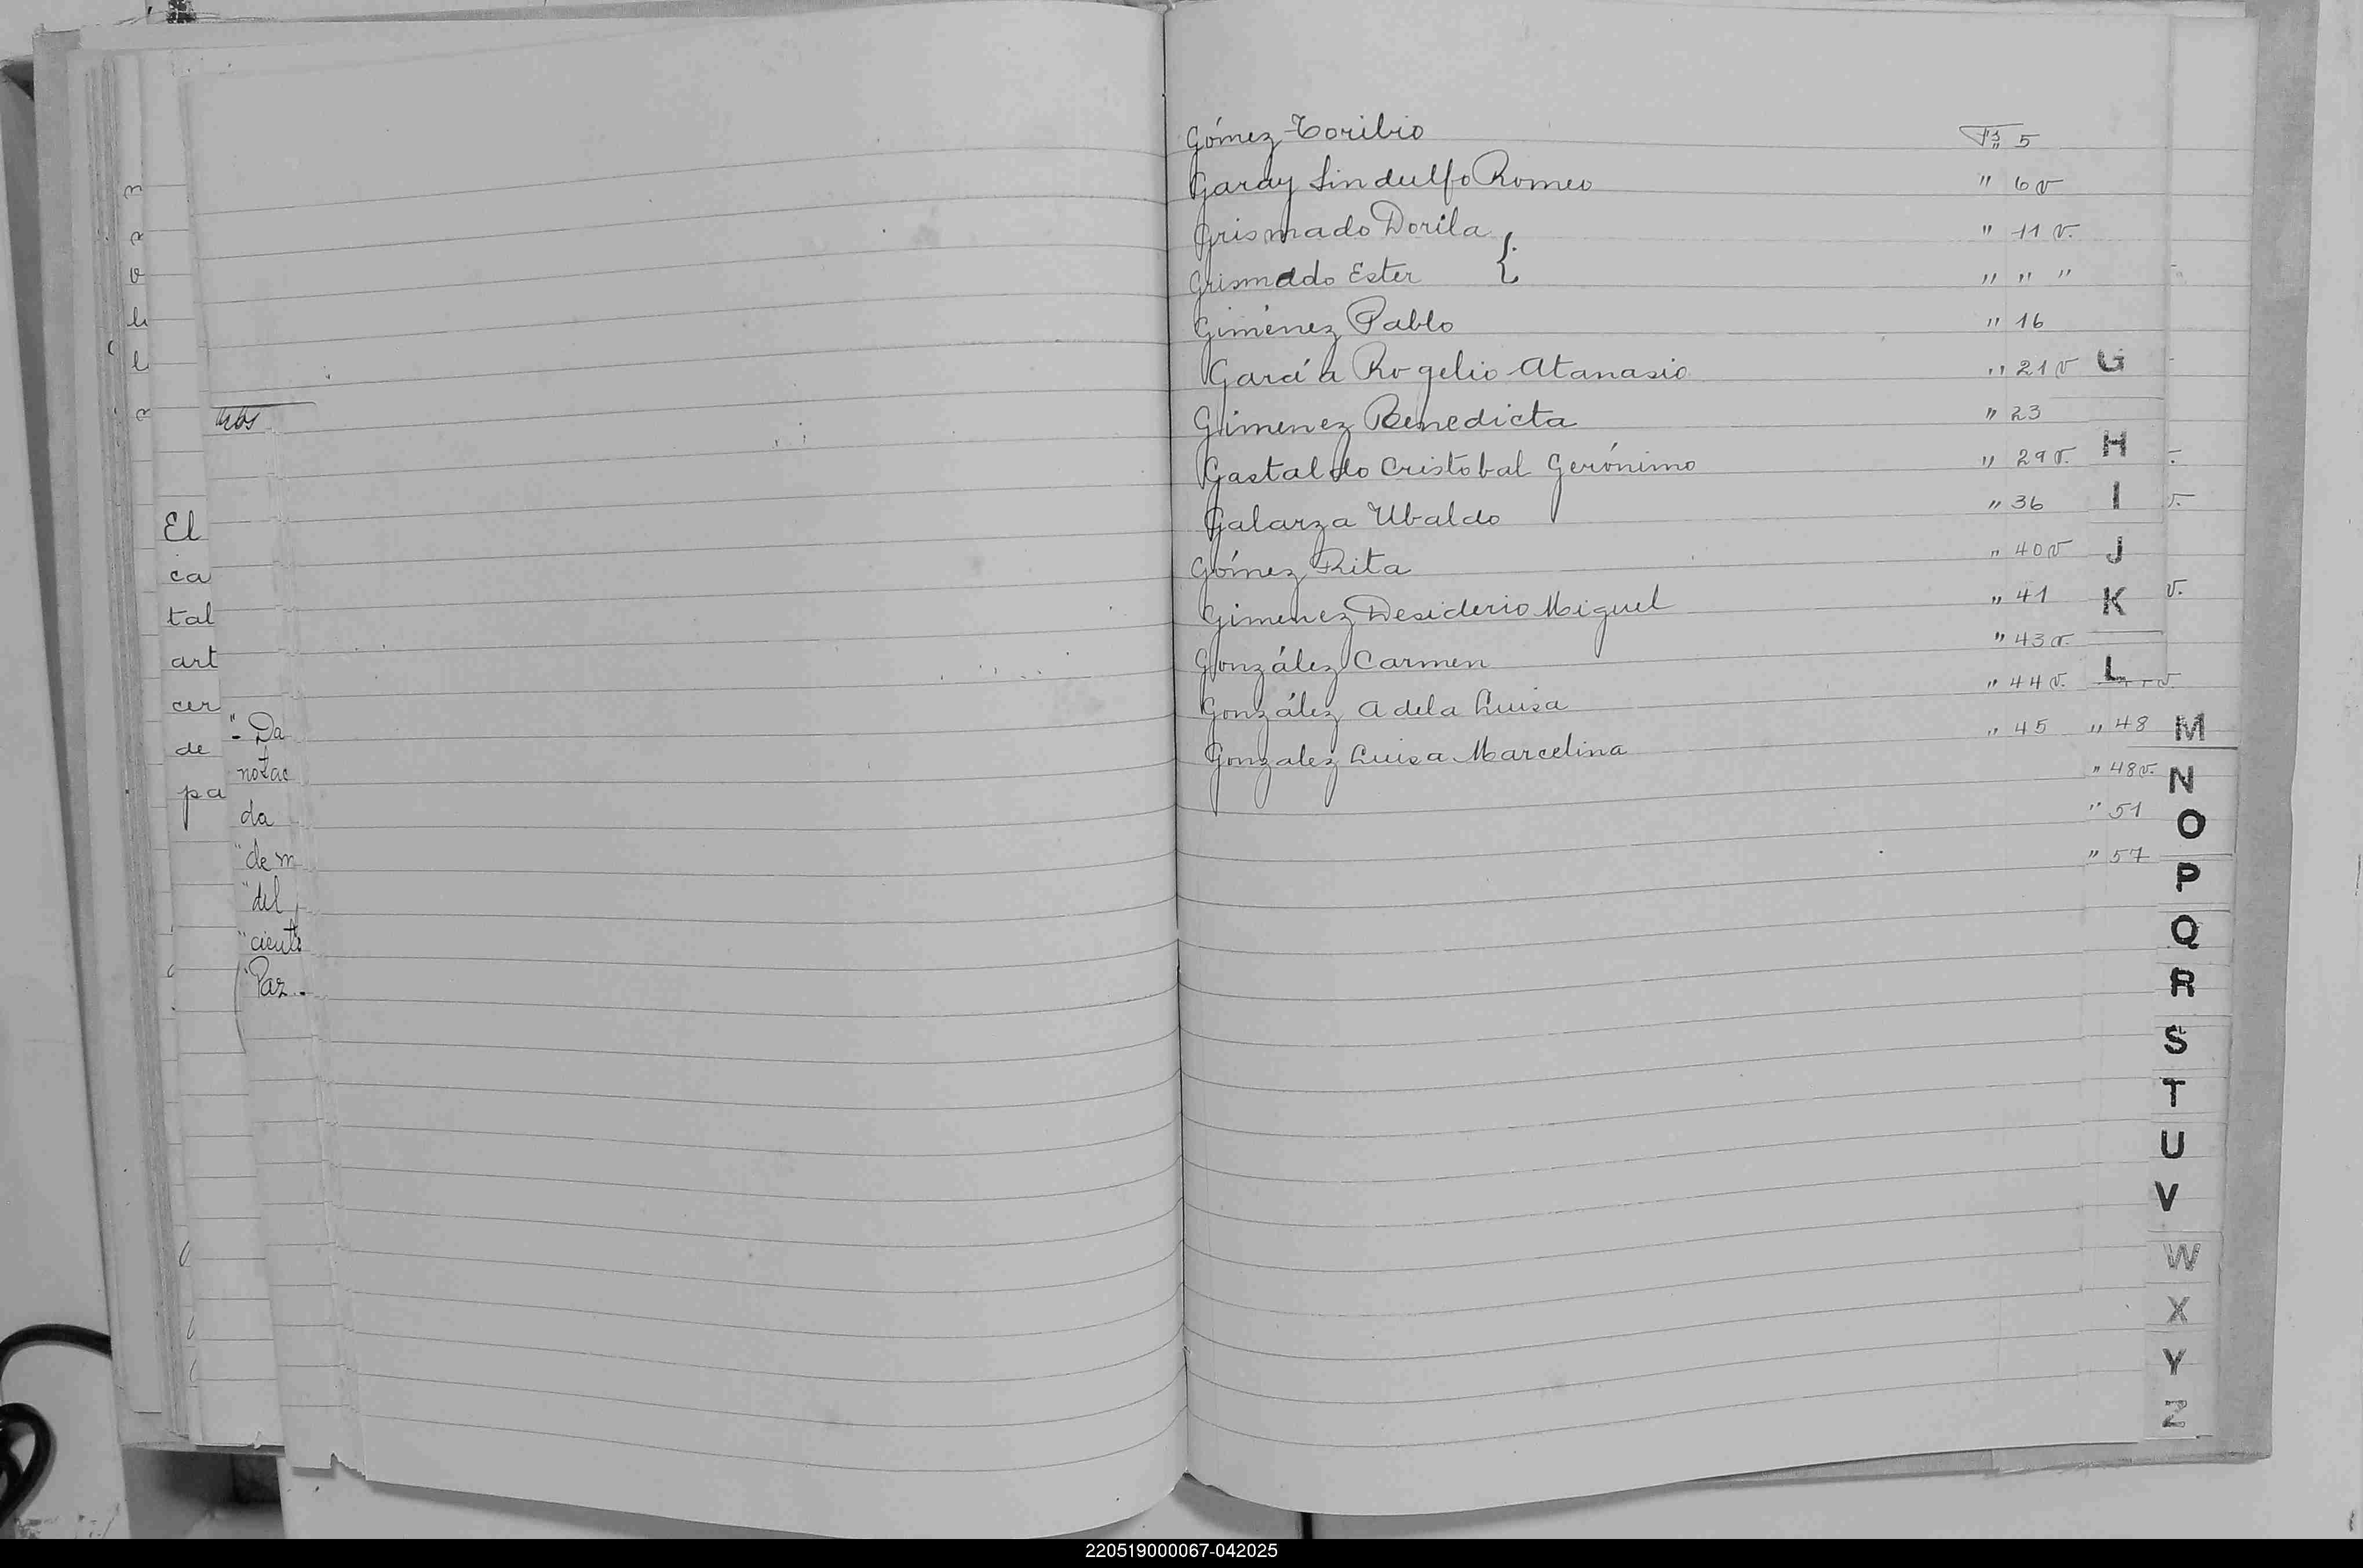 Gómez Toribio Fs 5
Garay Lindulfo Romeo " 6 v
Grismado Dorila " 11 v.
Grismado Ester " " "
Giménez Pablo " 16
García Rogelio Atanasio " 21 v
Gimenez Benedicta " 23
Gastaldo Cristobal Gerónimo " 29 v.
Galarza Ubaldo " 36
Gómez Rita " 40 v
Gimenez Desiderio Miguel " 41
González Carmen " 43 v.
González Adela Luisa " 44 v.
Gonzalez Luisa Marcelina " 45
" 48
" 48 v.
" 51
" 57
G
H
I
J
K
L
M
N
O
P
Q
R
S
T
U
V
W
X
Y
Z
El
ca
tal
art
cer
de
pa
"- Da
notac
da
"de m
"del
"ciente
"Paz.
220519000067-042025